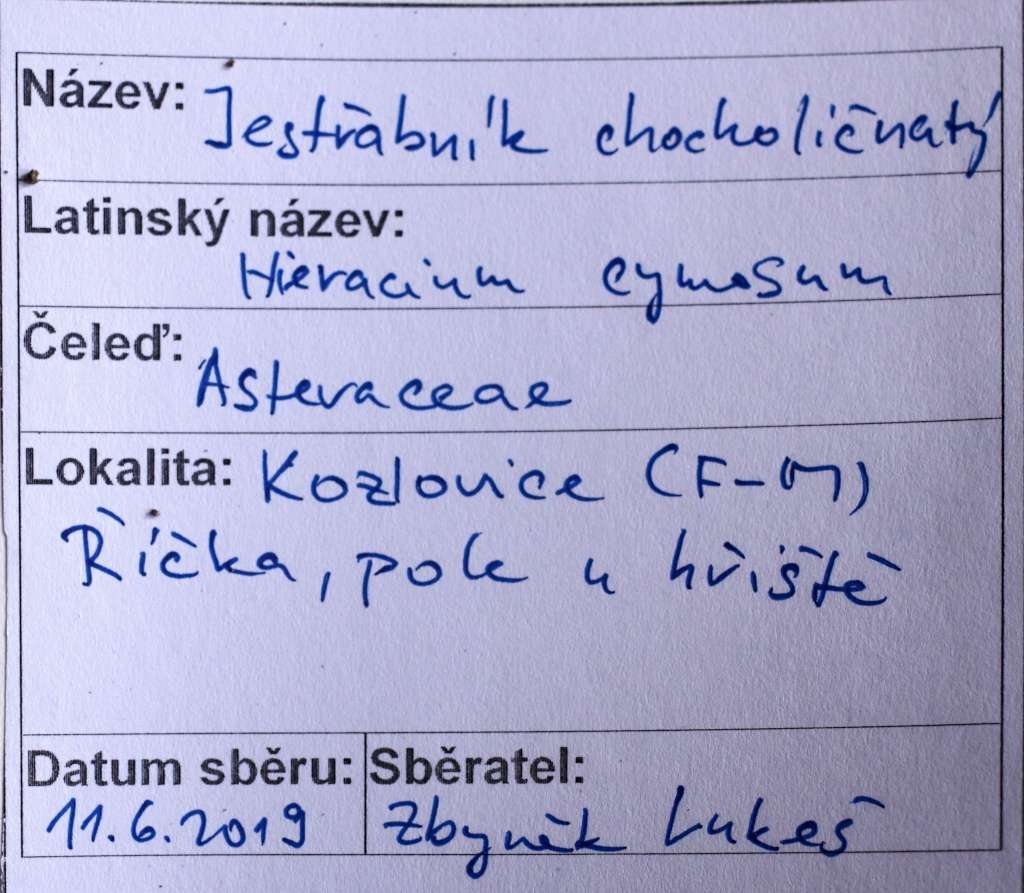 Název: Jestřábník chocholičnatý
Latinský název:
Hieracium cymosum
Čeleď:
Asteraceae
Lokalita: Kozlovice (F-M)
Říčka, pole u hřiště
Datum sběru: Sběratel:
11.6.2019 Zbyněk Lukeš